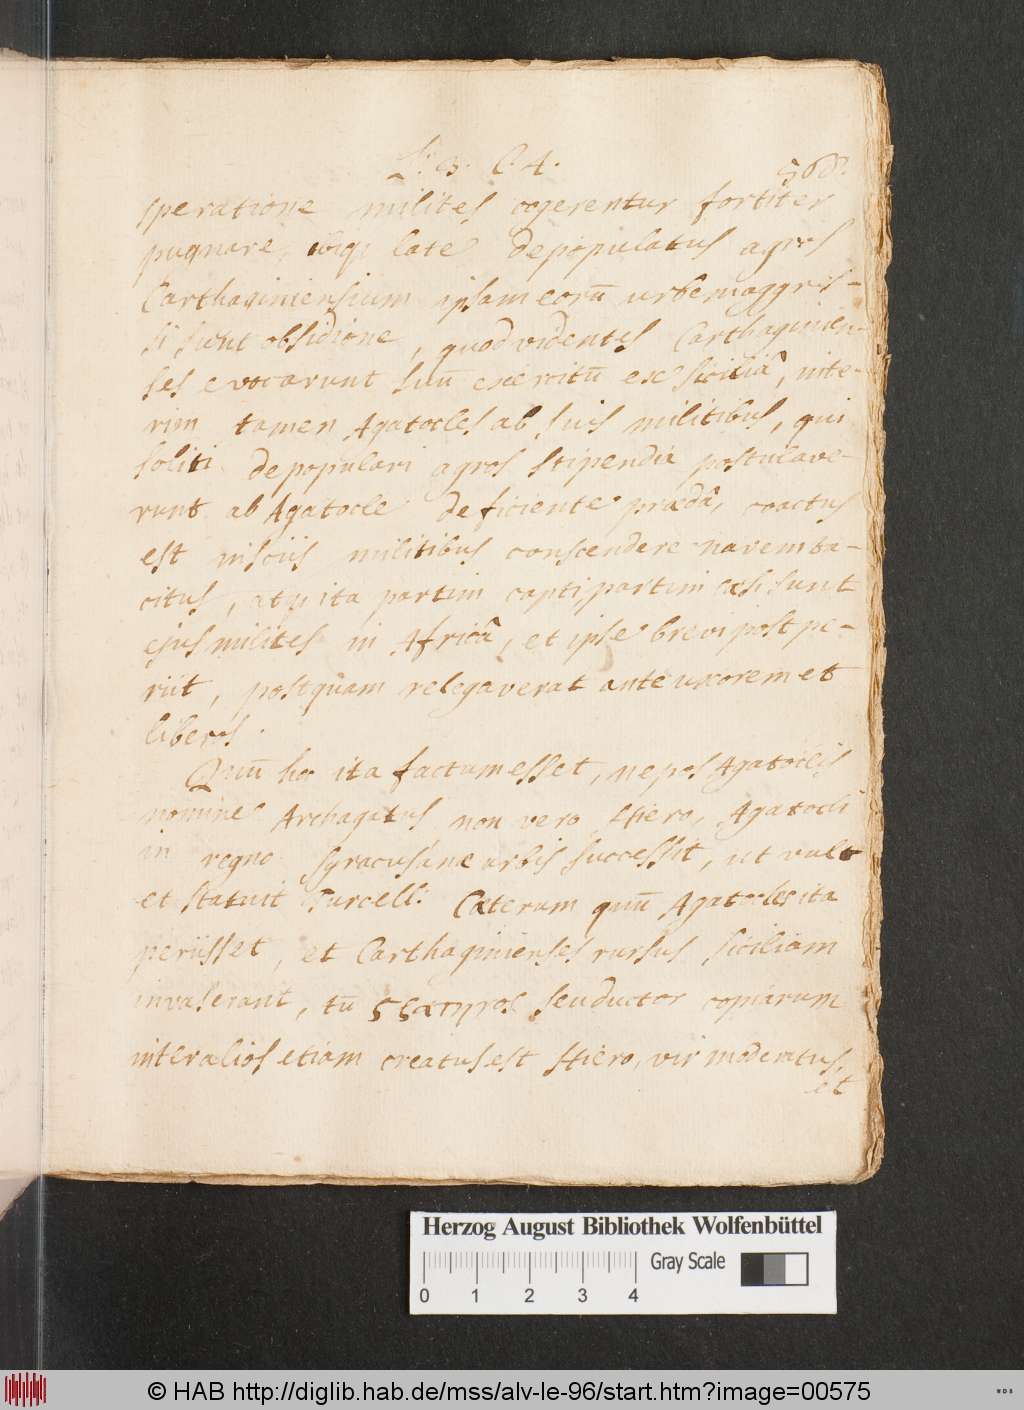 L: 3. C. 4. 568.
speratione milites cogerentur fortiter
pugnare, ibiq; late depopulatus agros
Carthaginiensium ipsam eorū urbem aggres-
si sunt obsidione, quod videntes Carthaginien-
ses evocarunt suū exercitū ex Siciliâ, inte-
rim tamen Agatocles ab suis militibus, qui
soliti depopulari agros stipendia postulave-
runt ab Agatocle deficiente prædâ, coactus
est insciis militibus conscendere navem ta-
citus, atq; ita partim capti, partim cæsi sunt
ejus milites in Africâ, et ipse brevi post pe-
riit, postquam relegaverat ante uxorem et
liberos.
Quū hoc ita factum esset, nepos Agatoclis
nomine Archagatus non vero Hiero, Agatocli
in regno Syracusanæ urbis successit, ut vult
et statuit Purcell: Cæterum quū Agatocles ita
periisset, et Carthaginienses rursus Siciliam
invaserant, tū seu ductor copiarum
inter alios etiam creatus est Hiero, vir moderatus,
et
Herzog August Bibliothek Wolfenbüttel
Gray Scale
0 1 2 3 4
© HAB http://diglib.hab.de/mss/alv-le-96/start.htm?image=00575